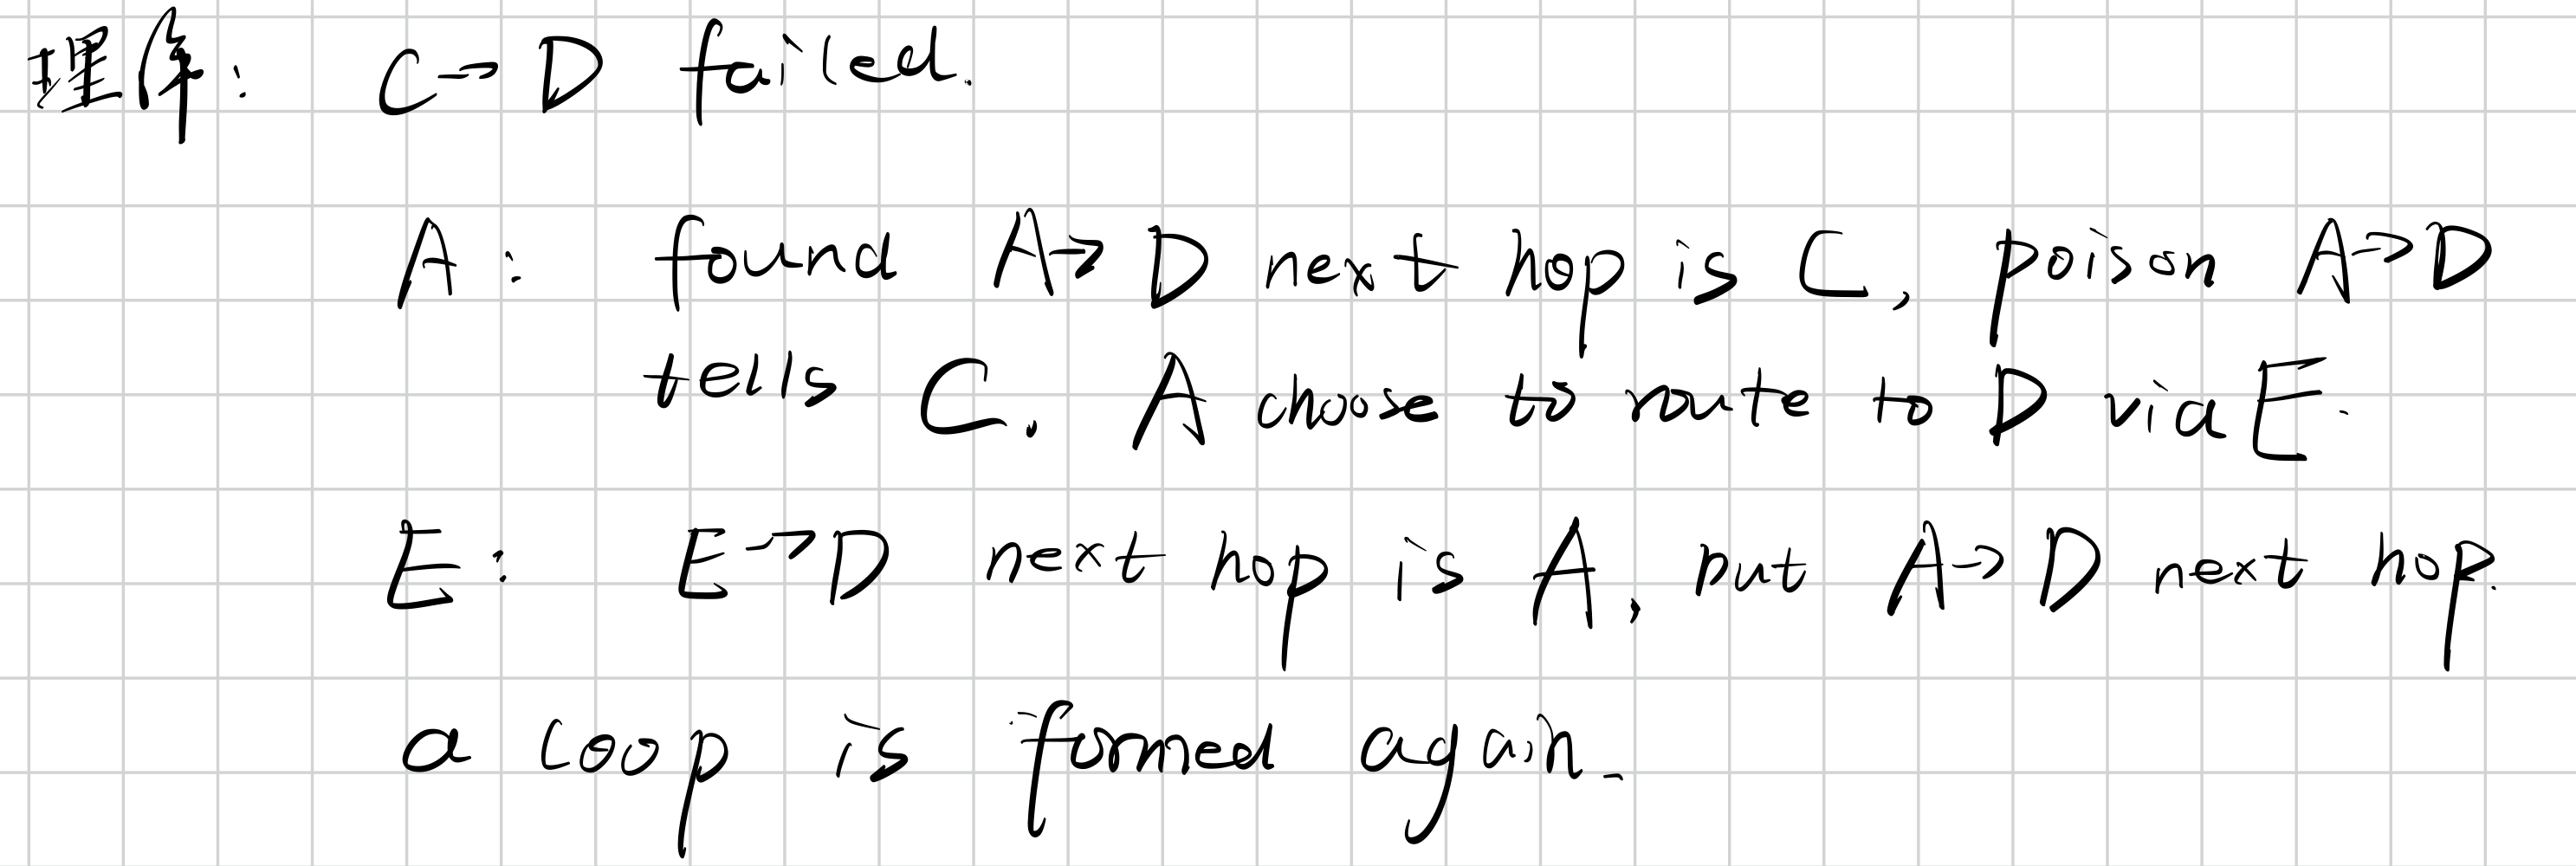 理解: C→D failed.
A: found A→D next hop is C, poison A→D
tells C. A choose to route to D via E.
E: E→D next hop is A, but A→D next hop.
a loop is formed again.